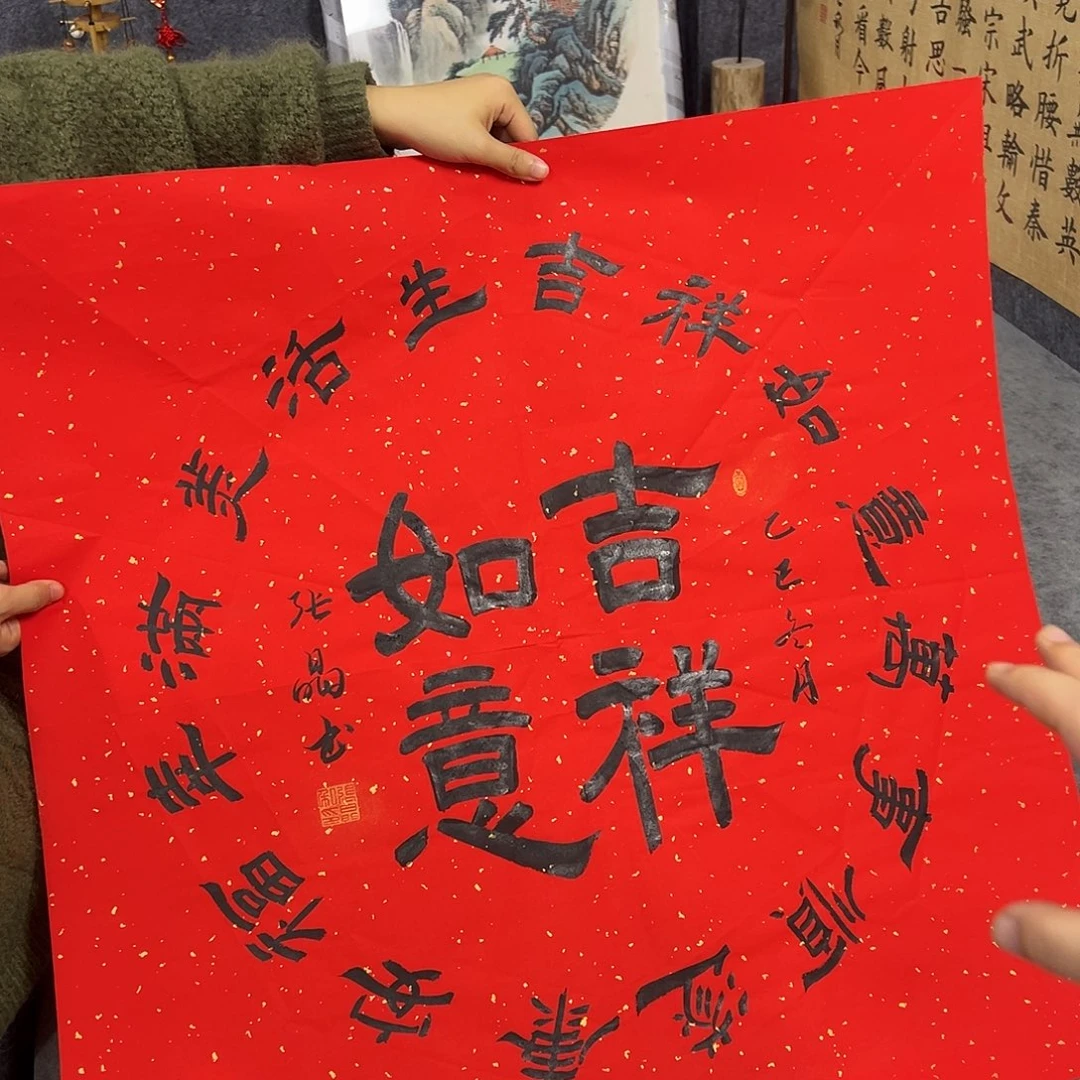 吉祥
如意
乙巳冬月
张晶书
吉祥如意萬事順遂
生活美满幸福安康
數英
折腰惜秦
武略輸文
宗宋祖
吉思
射
數風
看今